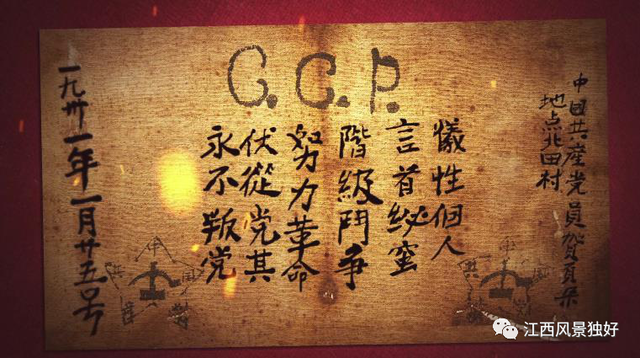 C.C.P.
中國共産党員贺页朵
地点北田村
犧牲個人
言首秘蜜
階級鬥争
努力革命
伏從党其
永不叛党
一九卅一年一月廿五号
江西风景独好